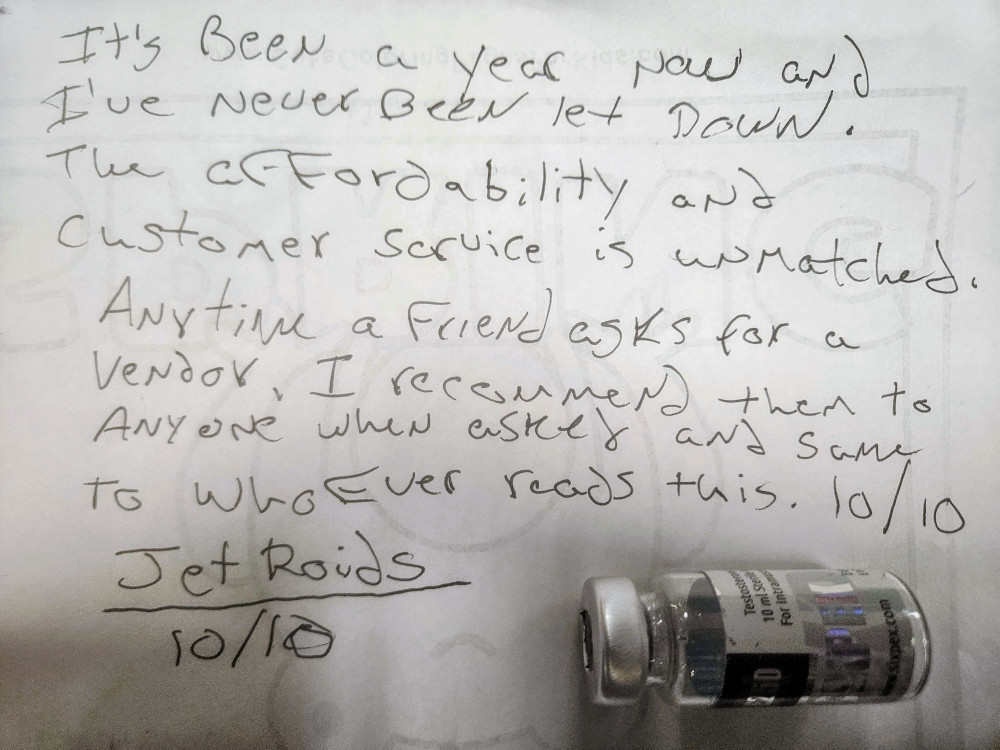 It's Been a year now and
I've never Been let Down.
The affordability and
Customer service is unmatched.
Anytime a Friend asks for a
Vendor, I recommend them to
Anyone when asked and same
To whoever reads this. 10/10
Jet Roids
10/10
Testosterone
10 ml Sterile
For Intram
250
www.sixpex.com